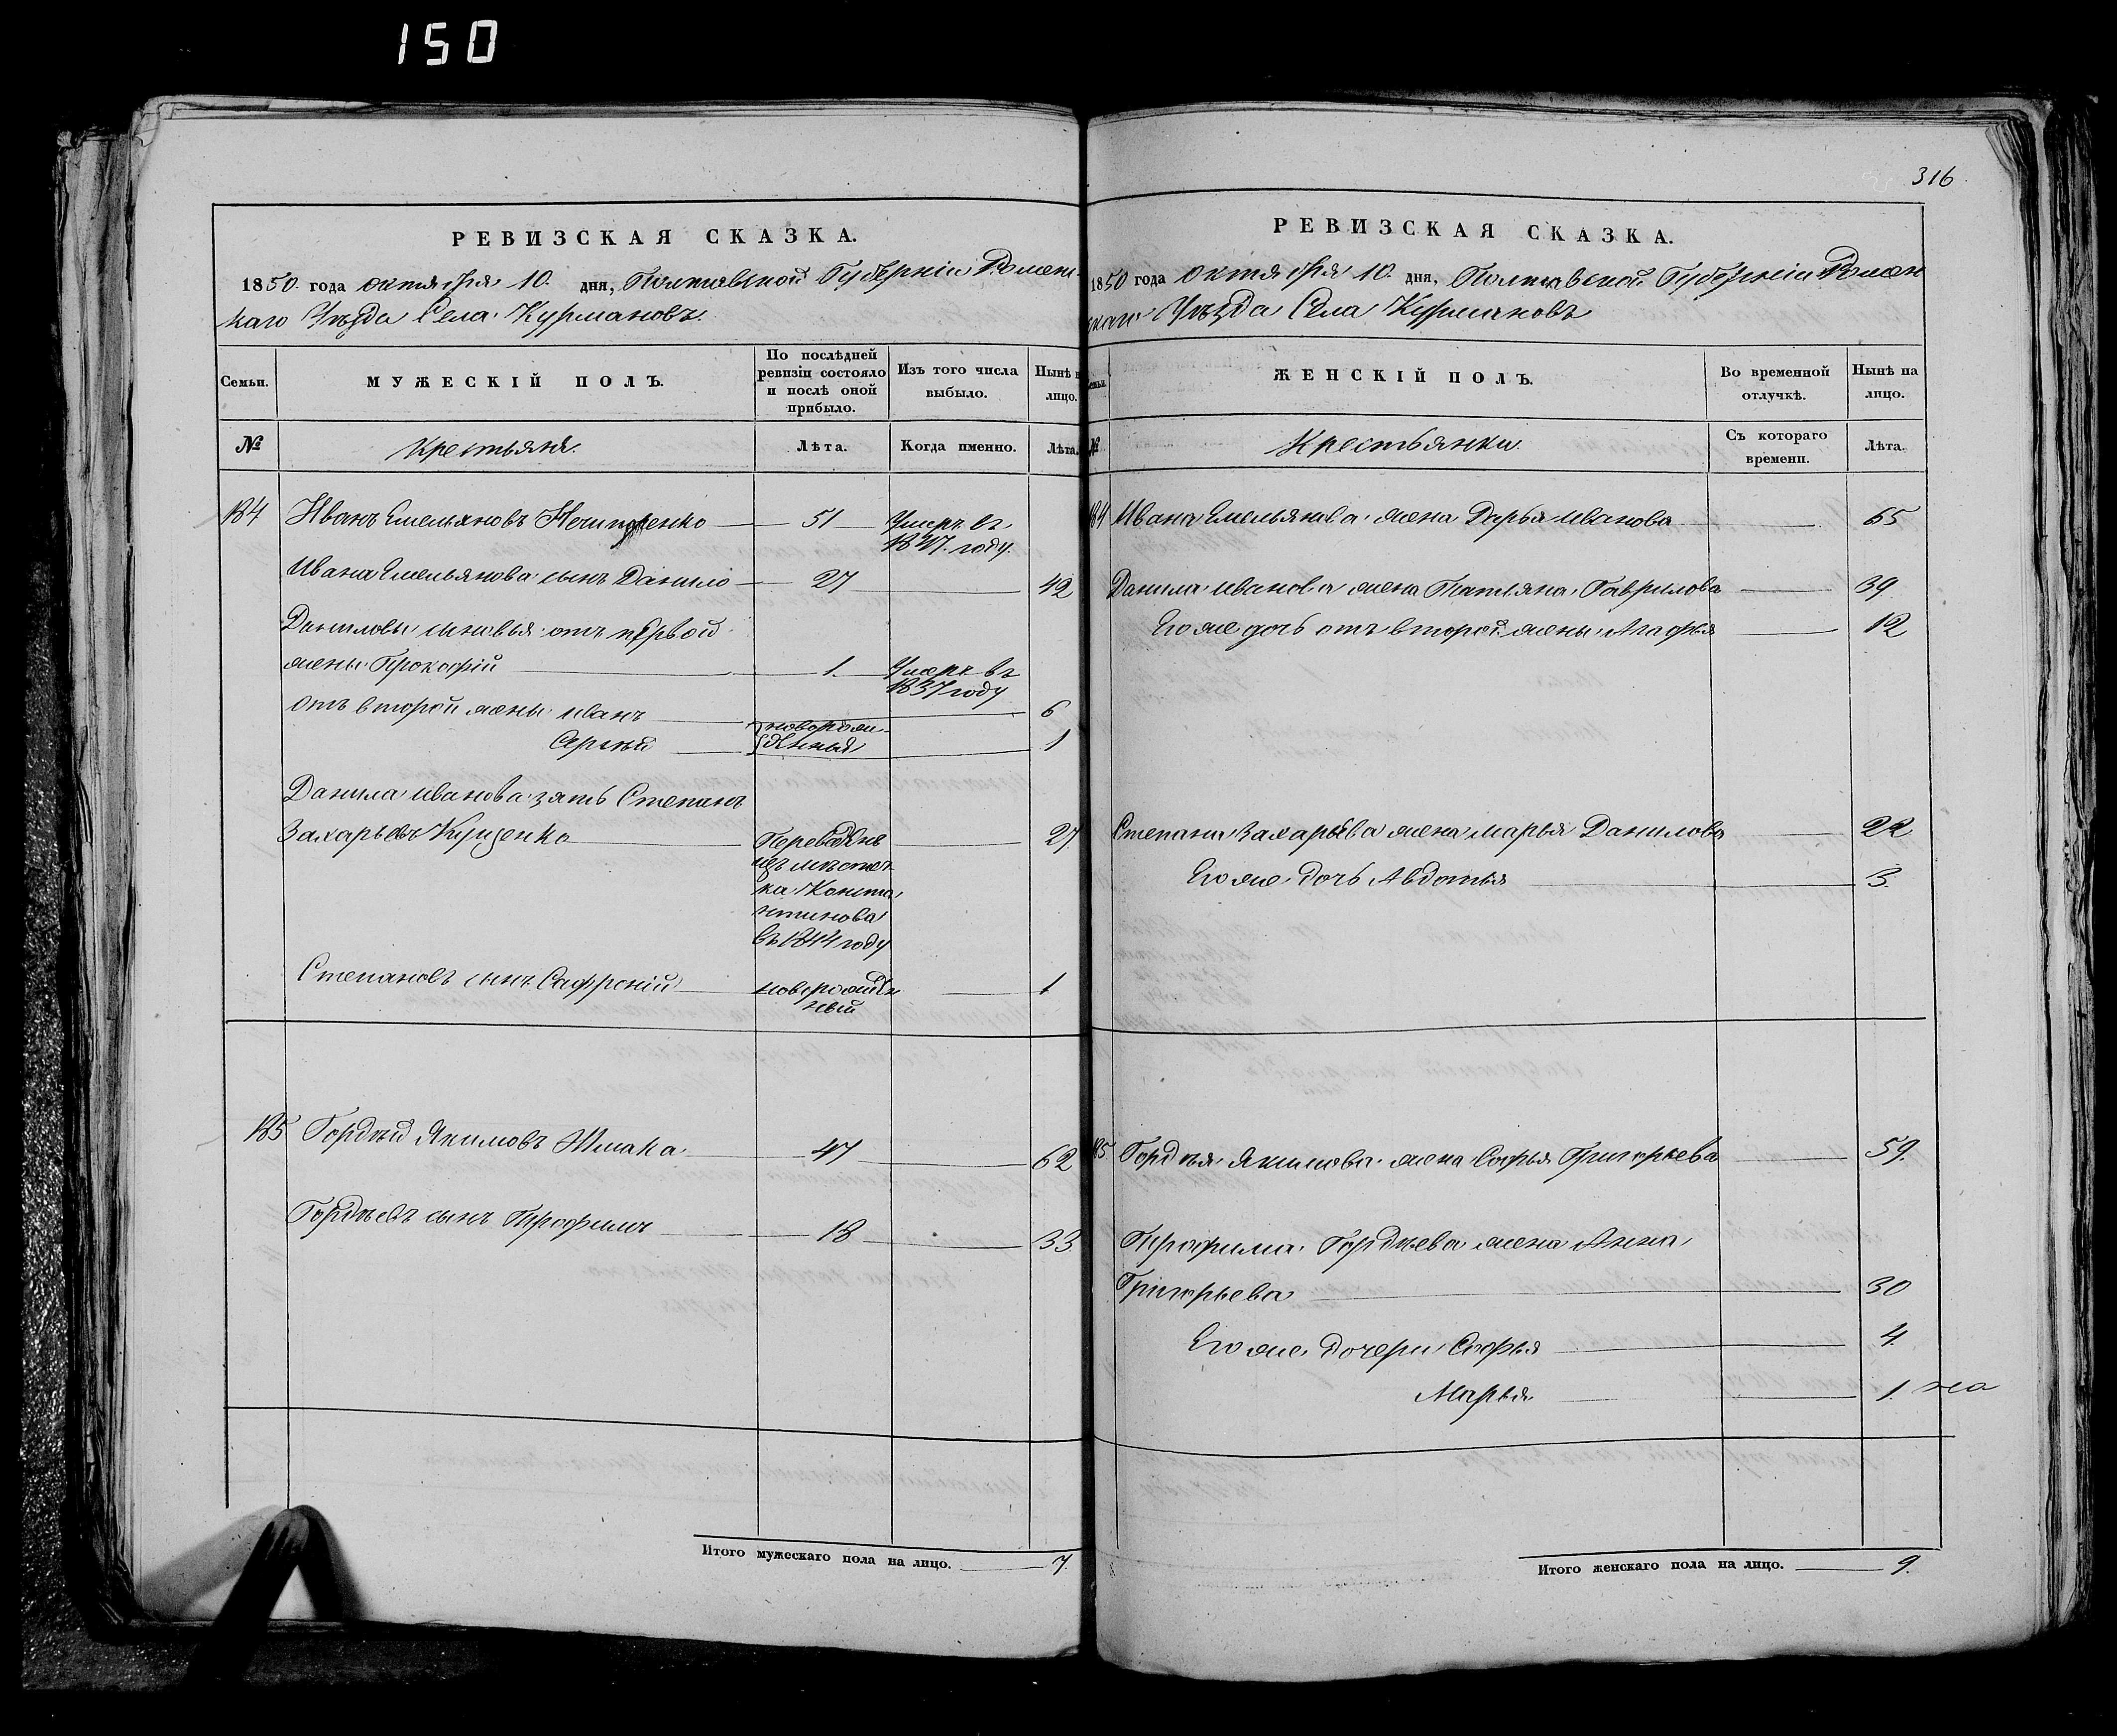 150
РЕВИЗСКАЯ СКАЗКА.
1850. года октября 10. дня, Полтавской Губерніи Ромен-
каго Уѣзда Села Курмановъ.
Семьи.
МУЖЕСКІЙ ПОЛЪ.
По послѣдней ревизіи состояло и послѣ оной прибыло.
Изъ того числа выбыло.
Нынѣ н лицо.
№
Крестьяня.
Лѣта.
Когда именно.
Лѣта.
184 Иванъ Емельяновъ Нечипоренко 51 Умеръ въ
1847. году.
Ивана Емельянова сынъ Данило 27 42
Даниловы сыновья отъ первой
жены Прокофій 1. Умеръ въ
1837 году
отъ второй жены иванъ 6
Сергѣй новорож-
денныя 1
Данила иванова зять Степанъ
Захарьевъ Куценко Переведенъ 27
изъ мѣстеч
ка Конста
нтинова
въ 1844 году
Степановъ сынъ Сафроній новорожден
ный 1
185 Гордѣй Якимовъ 47 62
Гордѣевъ сынъ Трофимъ 18 33
Итого мужескаго пола на лицо. 7.
316
РЕВИЗСКАЯ СКАЗКА.
1850 года Октября 10. дня, Полтавской Губерніи Ромен
скаго Уѣзда Села Курмановъ
Семьи.
ЖЕНСКІЙ ПОЛЪ.
Во временной отлучкѣ.
Нынѣ на лицо.
№
Крестьянки.
Съ котораго времени.
Лѣта.
184 Ивана Емельянова жена Дарья иванова 65
Данила иванова жена Татьяна Гаврилова 39
Его же дочь отъ второй жены Агафья 12
Степана Захарьева жена марья Данилова 22
Его же дочь Авдотья 3.
185. Гордѣя Якимова жена Софья Григорьева 59.
Трофима Гордѣева жена Анна
Григорьева 30
Его же дочери Софья 4.
Марья 1.
Итого женскаго пола на лицо. 9.